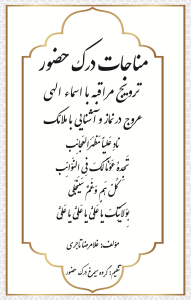 مناجات درک حضور
ترویج مراقبه با اسماء الهی
عروج در نماز و آشنایی با ملائک
نادِ عَلیاً مَظهَرَ العَجائِب
تَجِدهُ عَوناً لَکَ فِی النَّوائِب
کُلُّ هَمٍّ وَ غَمٍّ سَیَنجَلی
بِوِلایَتِکَ یا عَلیُّ یا عَلیُّ یا عَلیُّ
مؤلف: غلامرضا تاجری
تنظیم: گروه سیمرغ درک حضور